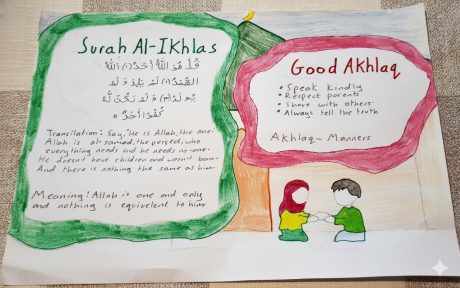 Surah Al-Ikhlas
قُلْ هُوَ اللّٰهُ أَحَدٌ (١) اَللّٰهُ
الصَّمَدُ (٢) لَمْ يَلِدْ وَلَمْ
يُولَدْ (٣) وَلَمْ يَكُنْ لَّهُ
كُفُوًا أَحَدٌ
Translation: Say, "He is Allah, the one.
Allah is al-samad, the perged, who
everything needs and he needs no-one.
He doesn't have children and wasn't born.
And there is nothing the same as him.
Meaning: Allah is one and only
and nothing is equivelent to him
Good Akhlaq
• Speak kindly
• Respect parents
• Share with others
• Always tell the truth
Akhlaq - Manners